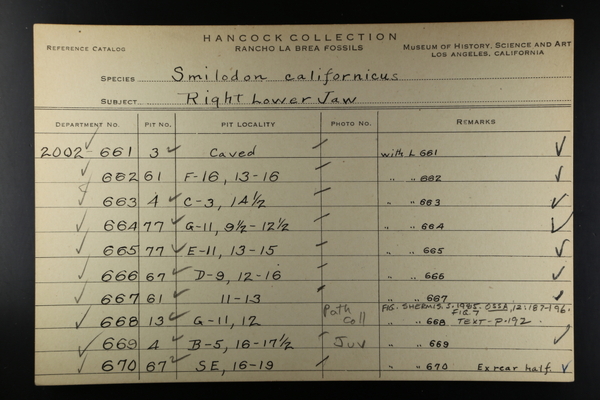 HANCOCK COLLECTION
REFERENCE CATALOG RANCHO LA BREA FOSSILS MUSEUM OF HISTORY, SCIENCE AND ART
LOS ANGELES, CALIFORNIA
SPECIES Smilodon californicus
SUBJECT Right Lower Jaw
DEPARTMENT NO. PIT NO. PIT LOCALITY PHOTO NO. REMARKS
2002-661 3 Caved with L 661
662 61 F-16, 13-16 " " 662
663 4 C-3, 14 1/2 " " 663
664 77 G-11, 9 1/2 - 12 1/2 " " 664
665 77 E-11, 13-15 " " 665
666 67 D-9, 12-16 " " 666
667 61 11-13 " " 667
FIG. SHERMIS, S. 1985. OSSA, 12:187-196. FIG. 7
668 13 G-11, 12 Path Coll " " 668 TEXT-P.192.
669 4 B-5, 16-17 1/2 Juv " " 669
670 67 SE, 16-19 " " 670 Ex rear half.